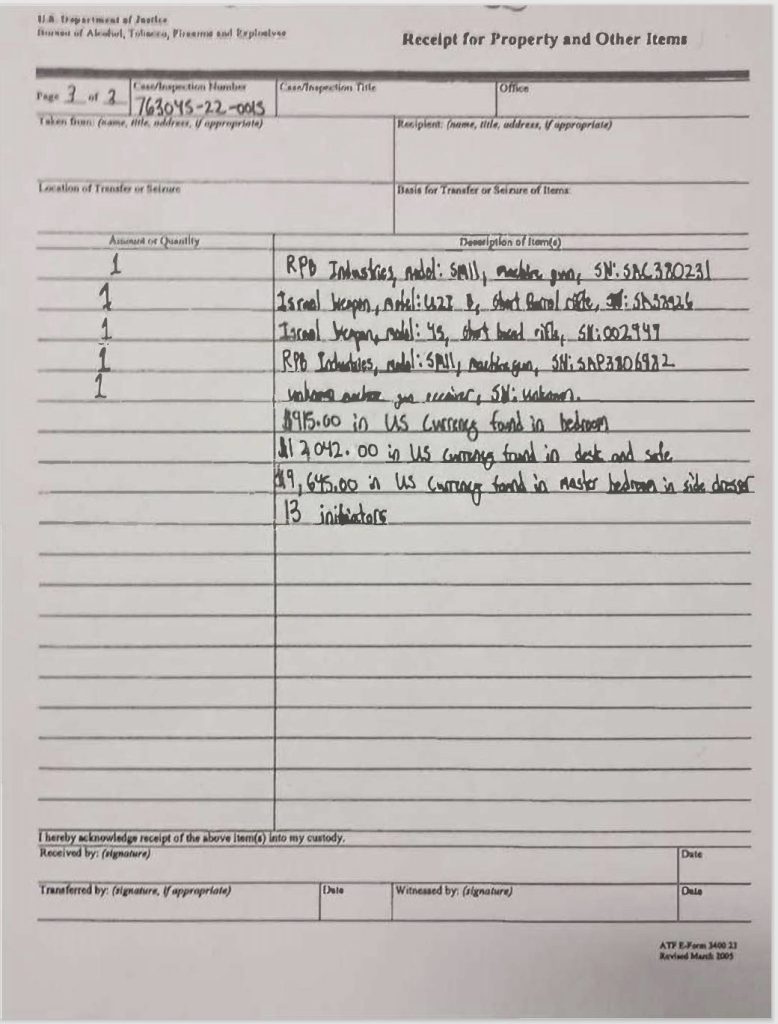 U.S. Department of Justice
Bureau of Alcohol, Tobacco, Firearms and Explosives
Receipt for Property and Other Items
Page 3 of 3
Case/Inspection Number
763045-22-0015
Case/Inspection Title
Office
Taken from: (name, title, address, if appropriate)
Recipient: (name, title, address, if appropriate)
Location of Transfer or Seizure
Basis for Transfer or Seizure of Items:
Amount or Quantity
Description of Item(s)
1 RPB Industries, model: SM11, machine gun, SN: SAC380231
1 Israel Weapon, model: UZI B, short barrel rifle, SN: SA52926
1 Israel Weapon, model: 45, short barrel rifle, SN: 002949
1 RPB Industries, model: SM11, machine gun, SN: SAP3806982
1 unknown machine gun receiver, SN: Unknown.
$915.00 in US Currency found in bedroom
$12,042.00 in US Currency found in desk and safe
$9,645.00 in US Currency found in master bedroom in side dresser
13 initiators
I hereby acknowledge receipt of the above item(s) into my custody.
Received by: (signature)
Date
Transferred by: (signature, if appropriate)
Date
Witnessed by: (signature)
Date
ATF E-Form 3400 23
Revised March 2005